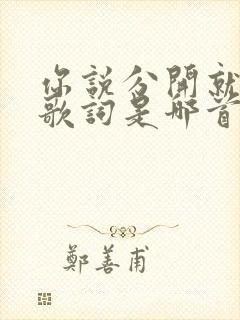 你說分開就
歌詞是哪首
鄭善甫